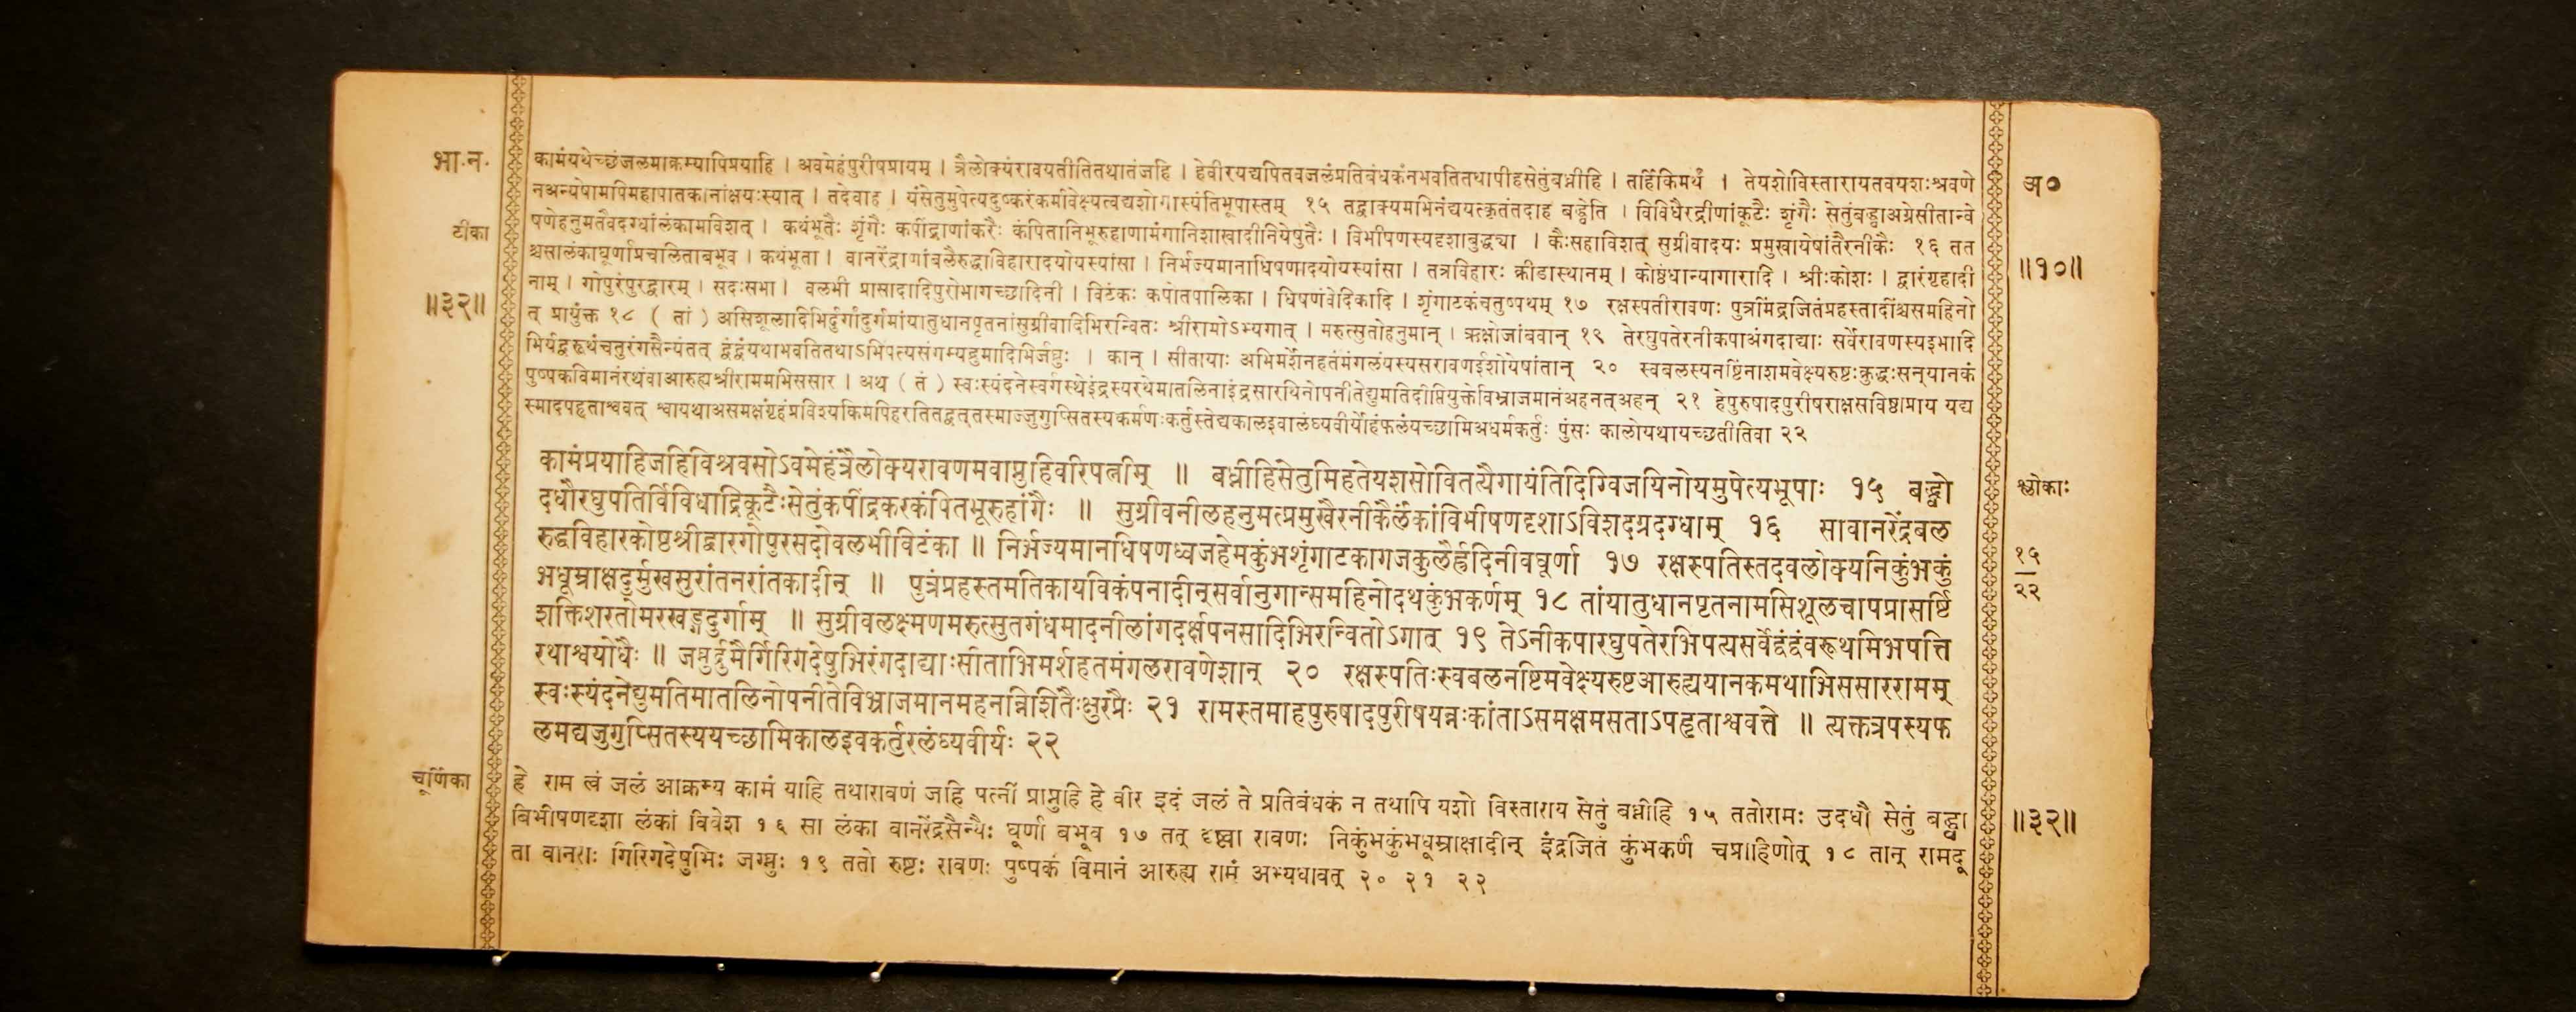 भा.न.
कामंयथेच्छंजलमाक्रम्यापिप्रयाहि । अवमेहंपुरीषप्रायम् । त्रैलोक्यंरावयतीतितथातंजहि । हेवीरयद्यपितवजलंप्रतिबंधकंनभवतितथापीहसेतुंबध्नीहि । तर्हिकिमर्थं । तेयशोविस्तारायतवयशःश्रवणे
अ०
नअन्येषामपिमहापातकानांक्षयःस्यात् । तदेवाह । यंसेतुमुपेत्यदुष्करंकर्मावेक्ष्यत्वद्यशोगास्यंतिभूपास्तम् १५ तद्वाक्यमभिनंद्ययत्कृतंतदाह बद्ध्वेति । विविधैरद्रीणांकूटैः शृंगैः सेतुंबद्ध्वाअग्रेसीतान्वे
टीका
षणेहनुमतैवदग्धांलंकामविशत् । कथंभूतैः शृंगैः कपींद्राणांकरैः कंपितानिभूरुहाणामंगानिशाखादीनियेषुतैः । विभीषणस्यदृशाबुद्ध्या । कैःसहाविशत् सुग्रीवादयः प्रमुखायेषांतैरनीकैः १६ तत
श्चसालंकाघूर्णाप्रचालिताबभूव । कथंभूता । वानरेंद्राणांबलैरुद्धाविहारादयोयस्यांसा । निर्भज्यमानाधिषणादयोयस्यांसा । तत्रविहारः क्रीडास्थानम् । कोष्ठंधान्यागारादि । श्रीःकोशः । द्वारंगृहादी
॥१०॥
नाम् । गोपुरंपुरद्वारम् । सदःसभा । वलभी प्रासादादिपुरोभागच्छादिनी । विटंकः कपोतपालिका । धिषणंवेदिकादि । शृंगाटकंचतुष्पथम् १७ रक्षस्पतीरावणः पुत्रमिंद्रजितंप्रहस्तादींश्चसमहिनो
॥३२॥
त् प्रायुंक्त १८ ( तां ) असिशूलादिभिर्दुर्गांदुर्गमांयातुधानपृतनांसुग्रीवादिभिरन्वितः श्रीरामोऽभ्यगात् । मरुत्सुतोहनुमान् । ऋक्षोजांबवान् १९ तेरघुपतेरनीकपाअंगदाद्याः सर्वेरावणस्यइभादि
भिर्यद्वरूथंचतुरंगसैन्यंतत् द्वंद्वंयथाभवतितथाऽभिपत्यसंगम्यद्रुमादिभिर्जघ्नुः । कान् । सीतायाः अभिमर्शेनहतंमंगलंयस्यसरावणईशोयेषांतान् २० स्वबलस्यनष्टिंनाशमवेक्ष्यरुष्टःक्रुद्धःसन्यानकं
पुष्पकविमानंरथंवाआरुह्यश्रीराममभिससार । अथ ( तं ) स्वःस्यंदनेस्वर्गस्थेइंद्रस्यरथेमातलिनाइंद्रसारथिनोपनीतेद्युमतिदीप्तियुक्तेविभ्राजमानंअहनत्अहन् २१ हेपुरुषादपुरीषराक्षसविष्ठाप्राय यद्य
स्मादपहृताश्ववत् श्वायथाअसमक्षंगृहंप्रविश्यकिमपिहरतितद्वत्तस्माज्जुगुप्सितस्यकर्मणःकर्तुस्तेद्यकालइवालंघ्यवीर्योहंफलंयच्छामिअधर्मकर्तुः पुंसः कालोयथायच्छतीतिवा २२
कामंप्रयाहिजहिविश्रवसोऽवमेहंत्रैलोक्यरावणमवाप्नुहिवीरपत्नीम् ॥ बध्नीहिसेतुमिहतेयशसोवितत्यैगायंतिदिग्विजयिनोयमुपेत्यभूपाः १५ बद्ध्वो
श्लोकाः
दधौरघुपतिर्विविधाद्रिकूटैःसेतुंकपींद्रकरकंपितभूरुहांगैः ॥ सुग्रीवनीलहनुमत्प्रमुखैरनीकैर्लंकांविभीषणदृशाऽविशदग्रदग्धाम् १६ सावानरेंद्रबल
रुद्धविहारकोष्ठश्रीद्वारगोपुरसदोवलभीविटंका ॥ निर्भज्यमानधिषणध्वजहेमकुंभशृंगाटकागजकुलैर्ह्रदिनीवघूर्णा १७ रक्षस्पतिस्तदवलोक्यनिकुंभकुं
१५
२२
भधूम्राक्षदुर्मुखसुरांतनरांतकादीन् ॥ पुत्रंप्रहस्तमतिकायविकंपनादीन्सर्वानुगान्समहिनोदथकुंभकर्णम् १८ तांयातुधानपृतनामसिशूलचापप्रासर्ष्टि
शक्तिशरतोमरखड्गदुर्गाम् ॥ सुग्रीवलक्ष्मणमरुत्सुतगंधमादनीलांगदर्क्षपनसादिभिरन्वितोऽगात् १९ तेऽनीकपारघुपतेरभिपत्यसर्वेद्वंद्वंवरूथमिभपत्ति
रथाश्वयोधैः ॥ जघ्नुर्द्रुमैर्गिरिगदेषुभिरंगदाद्याःसीताभिमर्शहतमंगलरावणेशान् २० रक्षस्पतिःस्वबलनष्टिमवेक्ष्यरुष्टआरुह्ययानकमथाभिससाररामम्
स्वःस्यंदनेद्युमतिमातलिनोपनीतेविभ्राजमानमहनन्निशितैःक्षुरप्रैः २१ रामस्तमाहपुरुषादपुरीषयन्नःकांताऽसमक्षमसताऽपहृताश्ववत्ते ॥ त्यक्तत्रपस्यफ
लमद्यजुगुप्सितस्ययच्छामिकालइवकर्तुरलंघ्यवीर्यः २२
चूर्णिका
हे राम त्वं जलं आक्रम्य कामं याहि तथारावणं जहि पत्नीं प्राप्नुहि हे वीर इदं जलं ते प्रतिबंधकं न तथापि यशो विस्ताराय सेतुं बध्नीहि १५ ततोरामः उदधौ सेतुं बद्ध्वा
॥३२॥
विभीषणदृशा लंकां विवेश १६ सा लंका वानरेंद्रसैन्यैः घूर्णा बभूव १७ तत् दृष्ट्वा रावणः निकुंभकुंभधूम्राक्षादीन् इंद्रजितं कुंभकर्णं चप्राहिणोत् १८ तान् रामदू
ता वानराः गिरिगदेषुभिः जघ्नुः १९ ततो रुष्टः रावणः पुष्पकं विमानं आरुह्य रामं अभ्यधावत् २० २१ २२